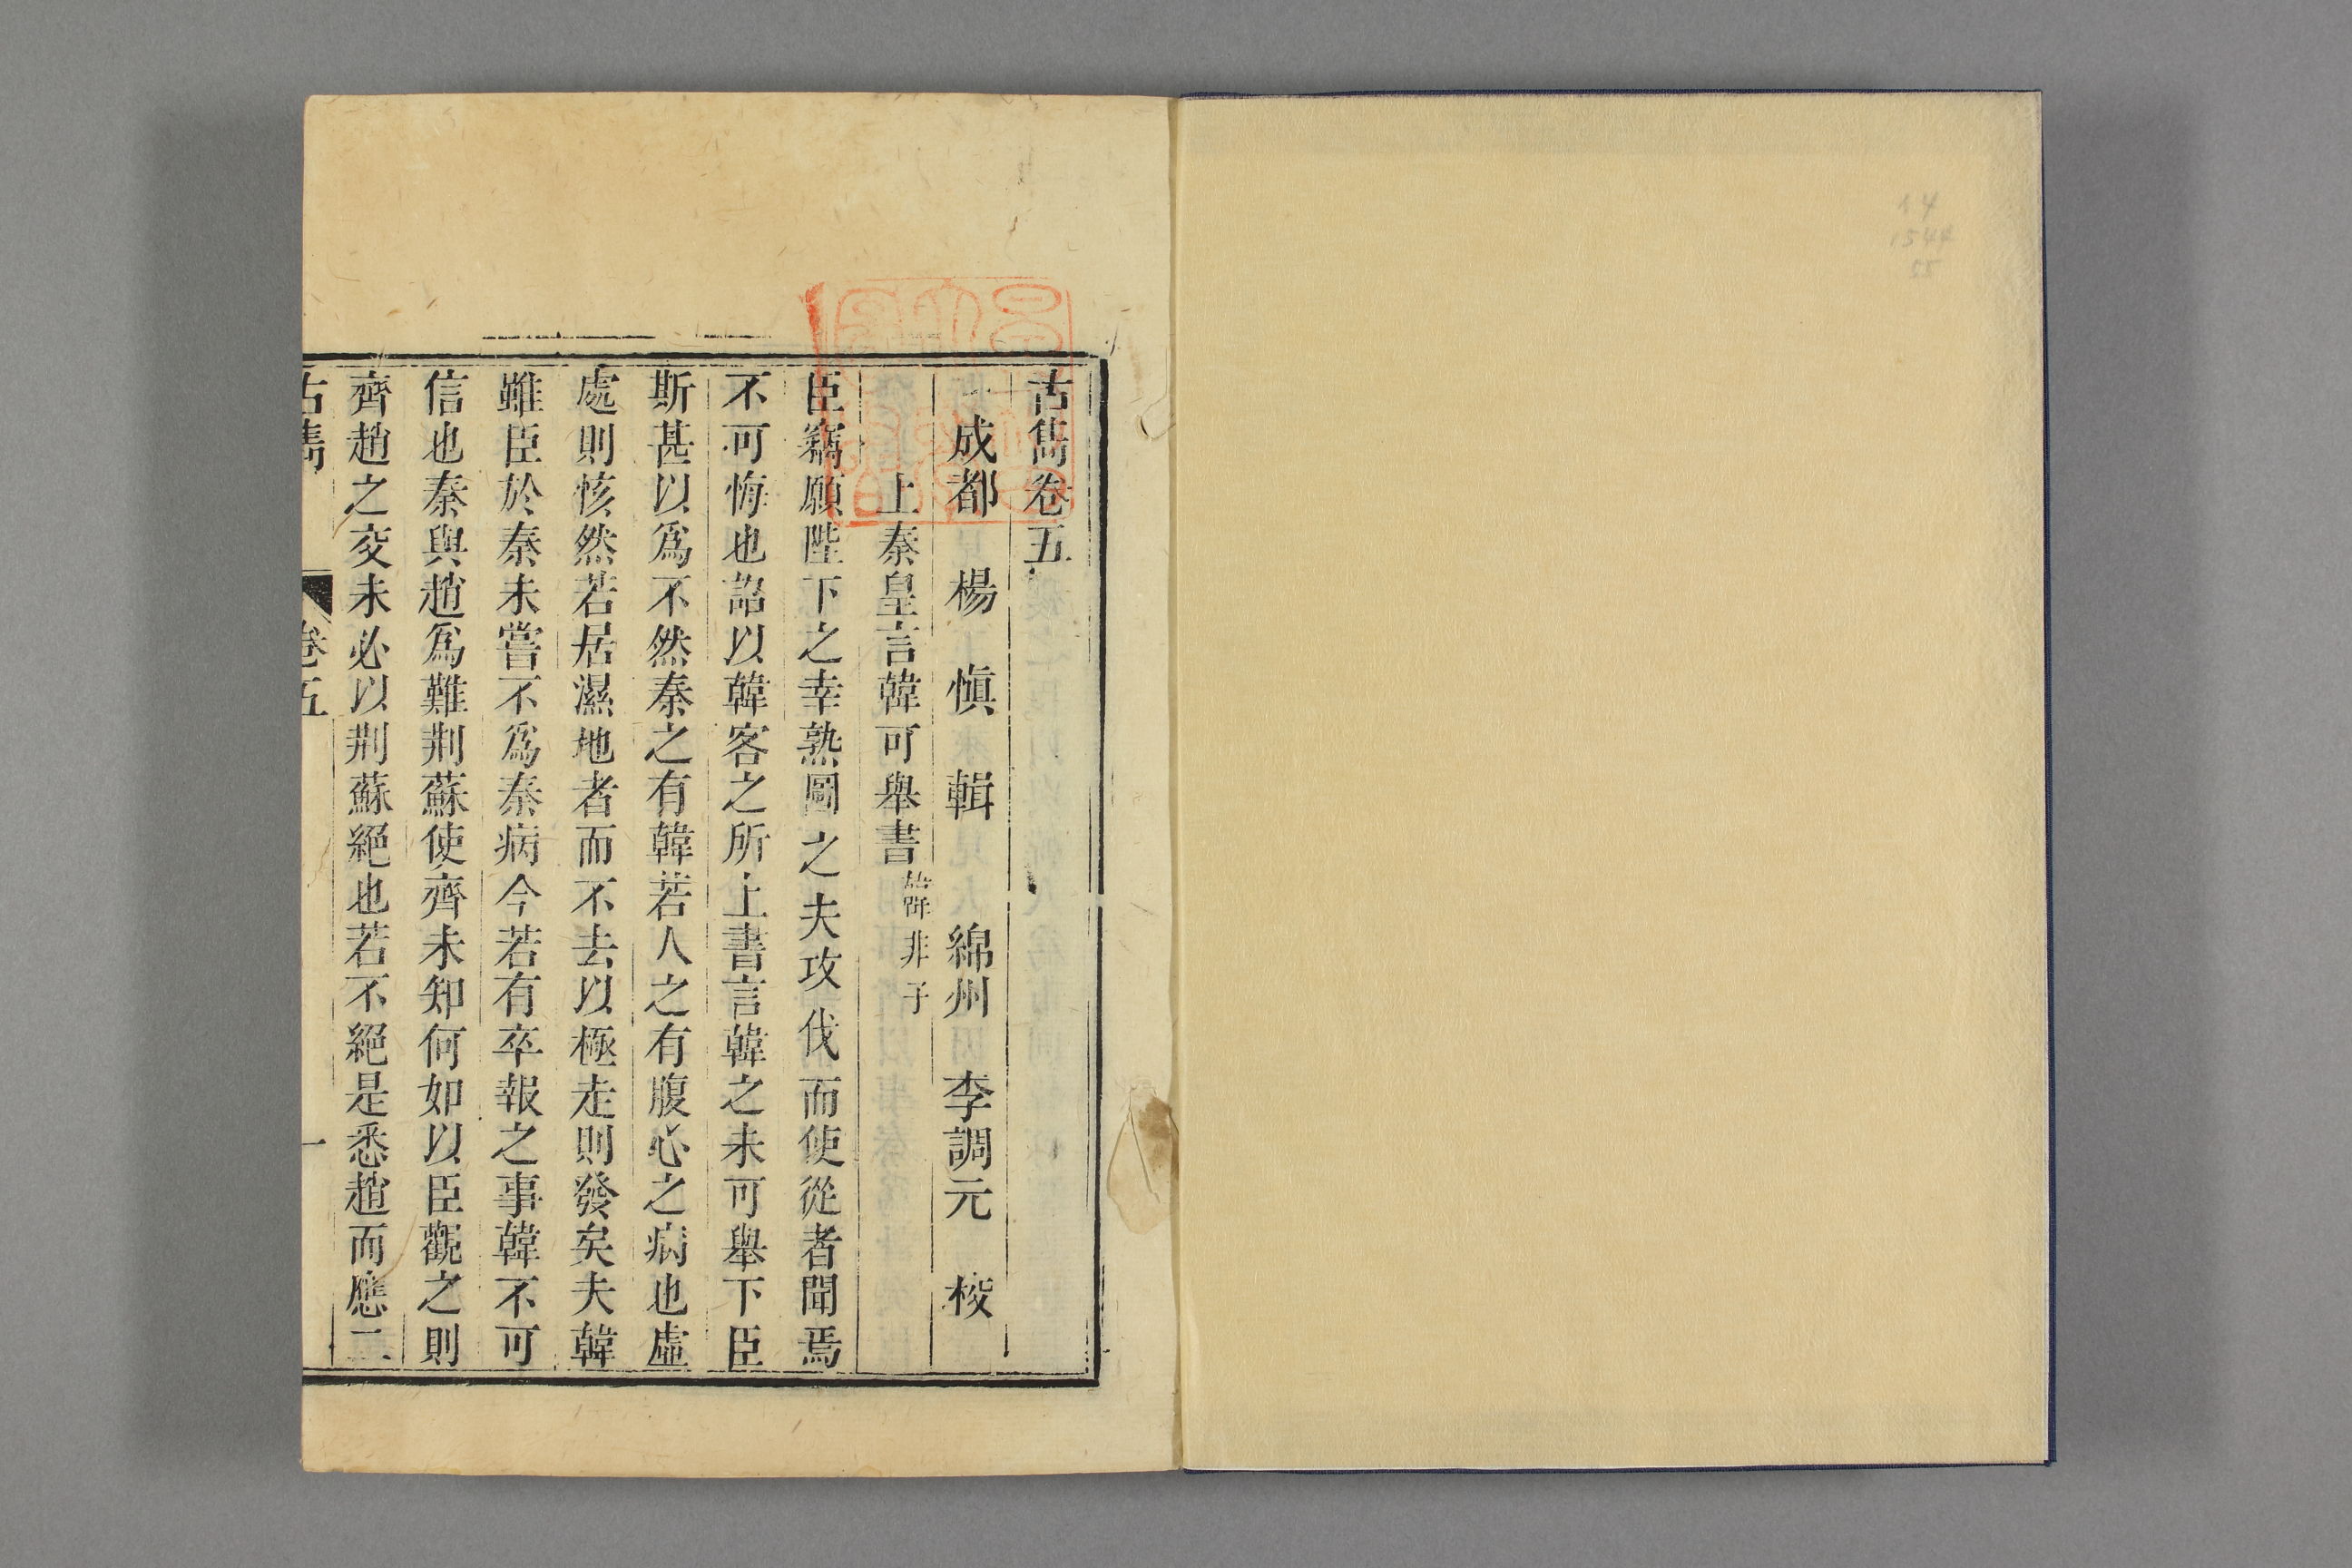 古雋卷五
成都 楊 愼 輯 綿州 李調元 校
上秦皇言韓可舉書 韓非子
臣竊願陛下之幸熟圖之夫攻伐而使從者聞焉
不可悔也詔以韓客之所上書言韓之未可舉下臣
斯甚以爲不然秦之有韓若人之有腹心之病也虛
處則㤥然若居濕地者而不去以極走則發矣夫韓
雖臣於秦未嘗不爲秦病今若有卒報之事韓不可
信也秦與趙爲難荆蘇使齊未知何如以臣觀之則
齊趙之交未必以荆蘇絕也若不絕是悉趙而應二
古雋 卷五 一
14
1544